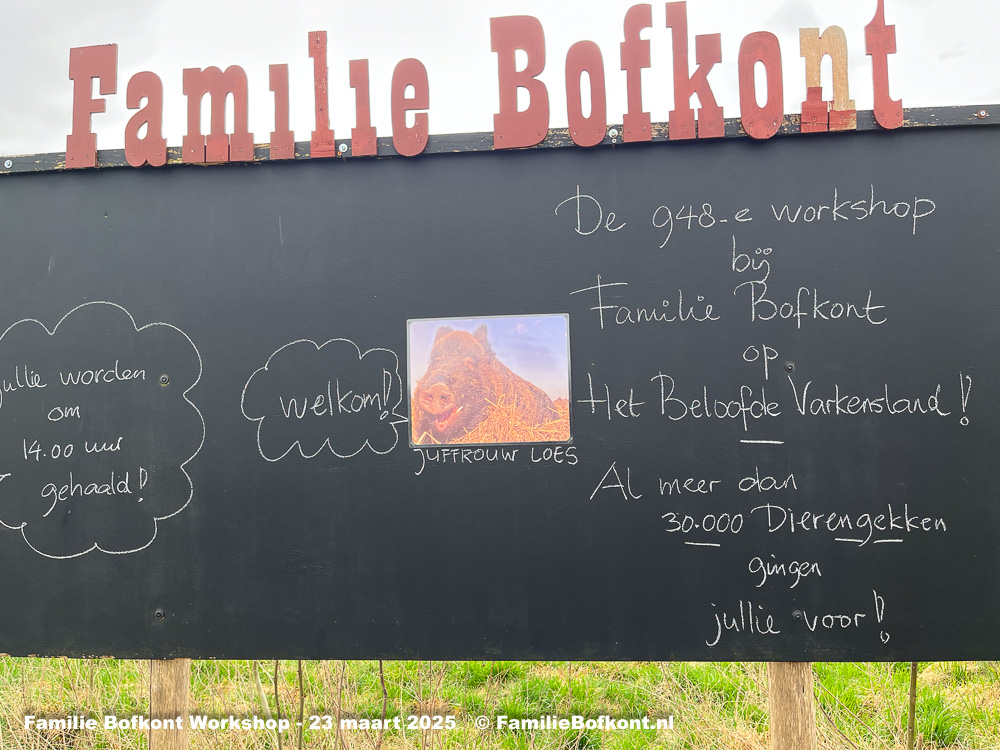 Familie Bofkont
De 948-e workshop
bij
Familie Bofkont
op
Het Beloofde Varkensland!
Al meer dan
30.000 Dierengekken
gingen
jullie voor!
welkom!
JUFFROUW LOES
jullie worden
om
14.00 uur
gehaald!
Familie Bofkont Workshop - 23 maart 2025 © FamilieBofkont.nl